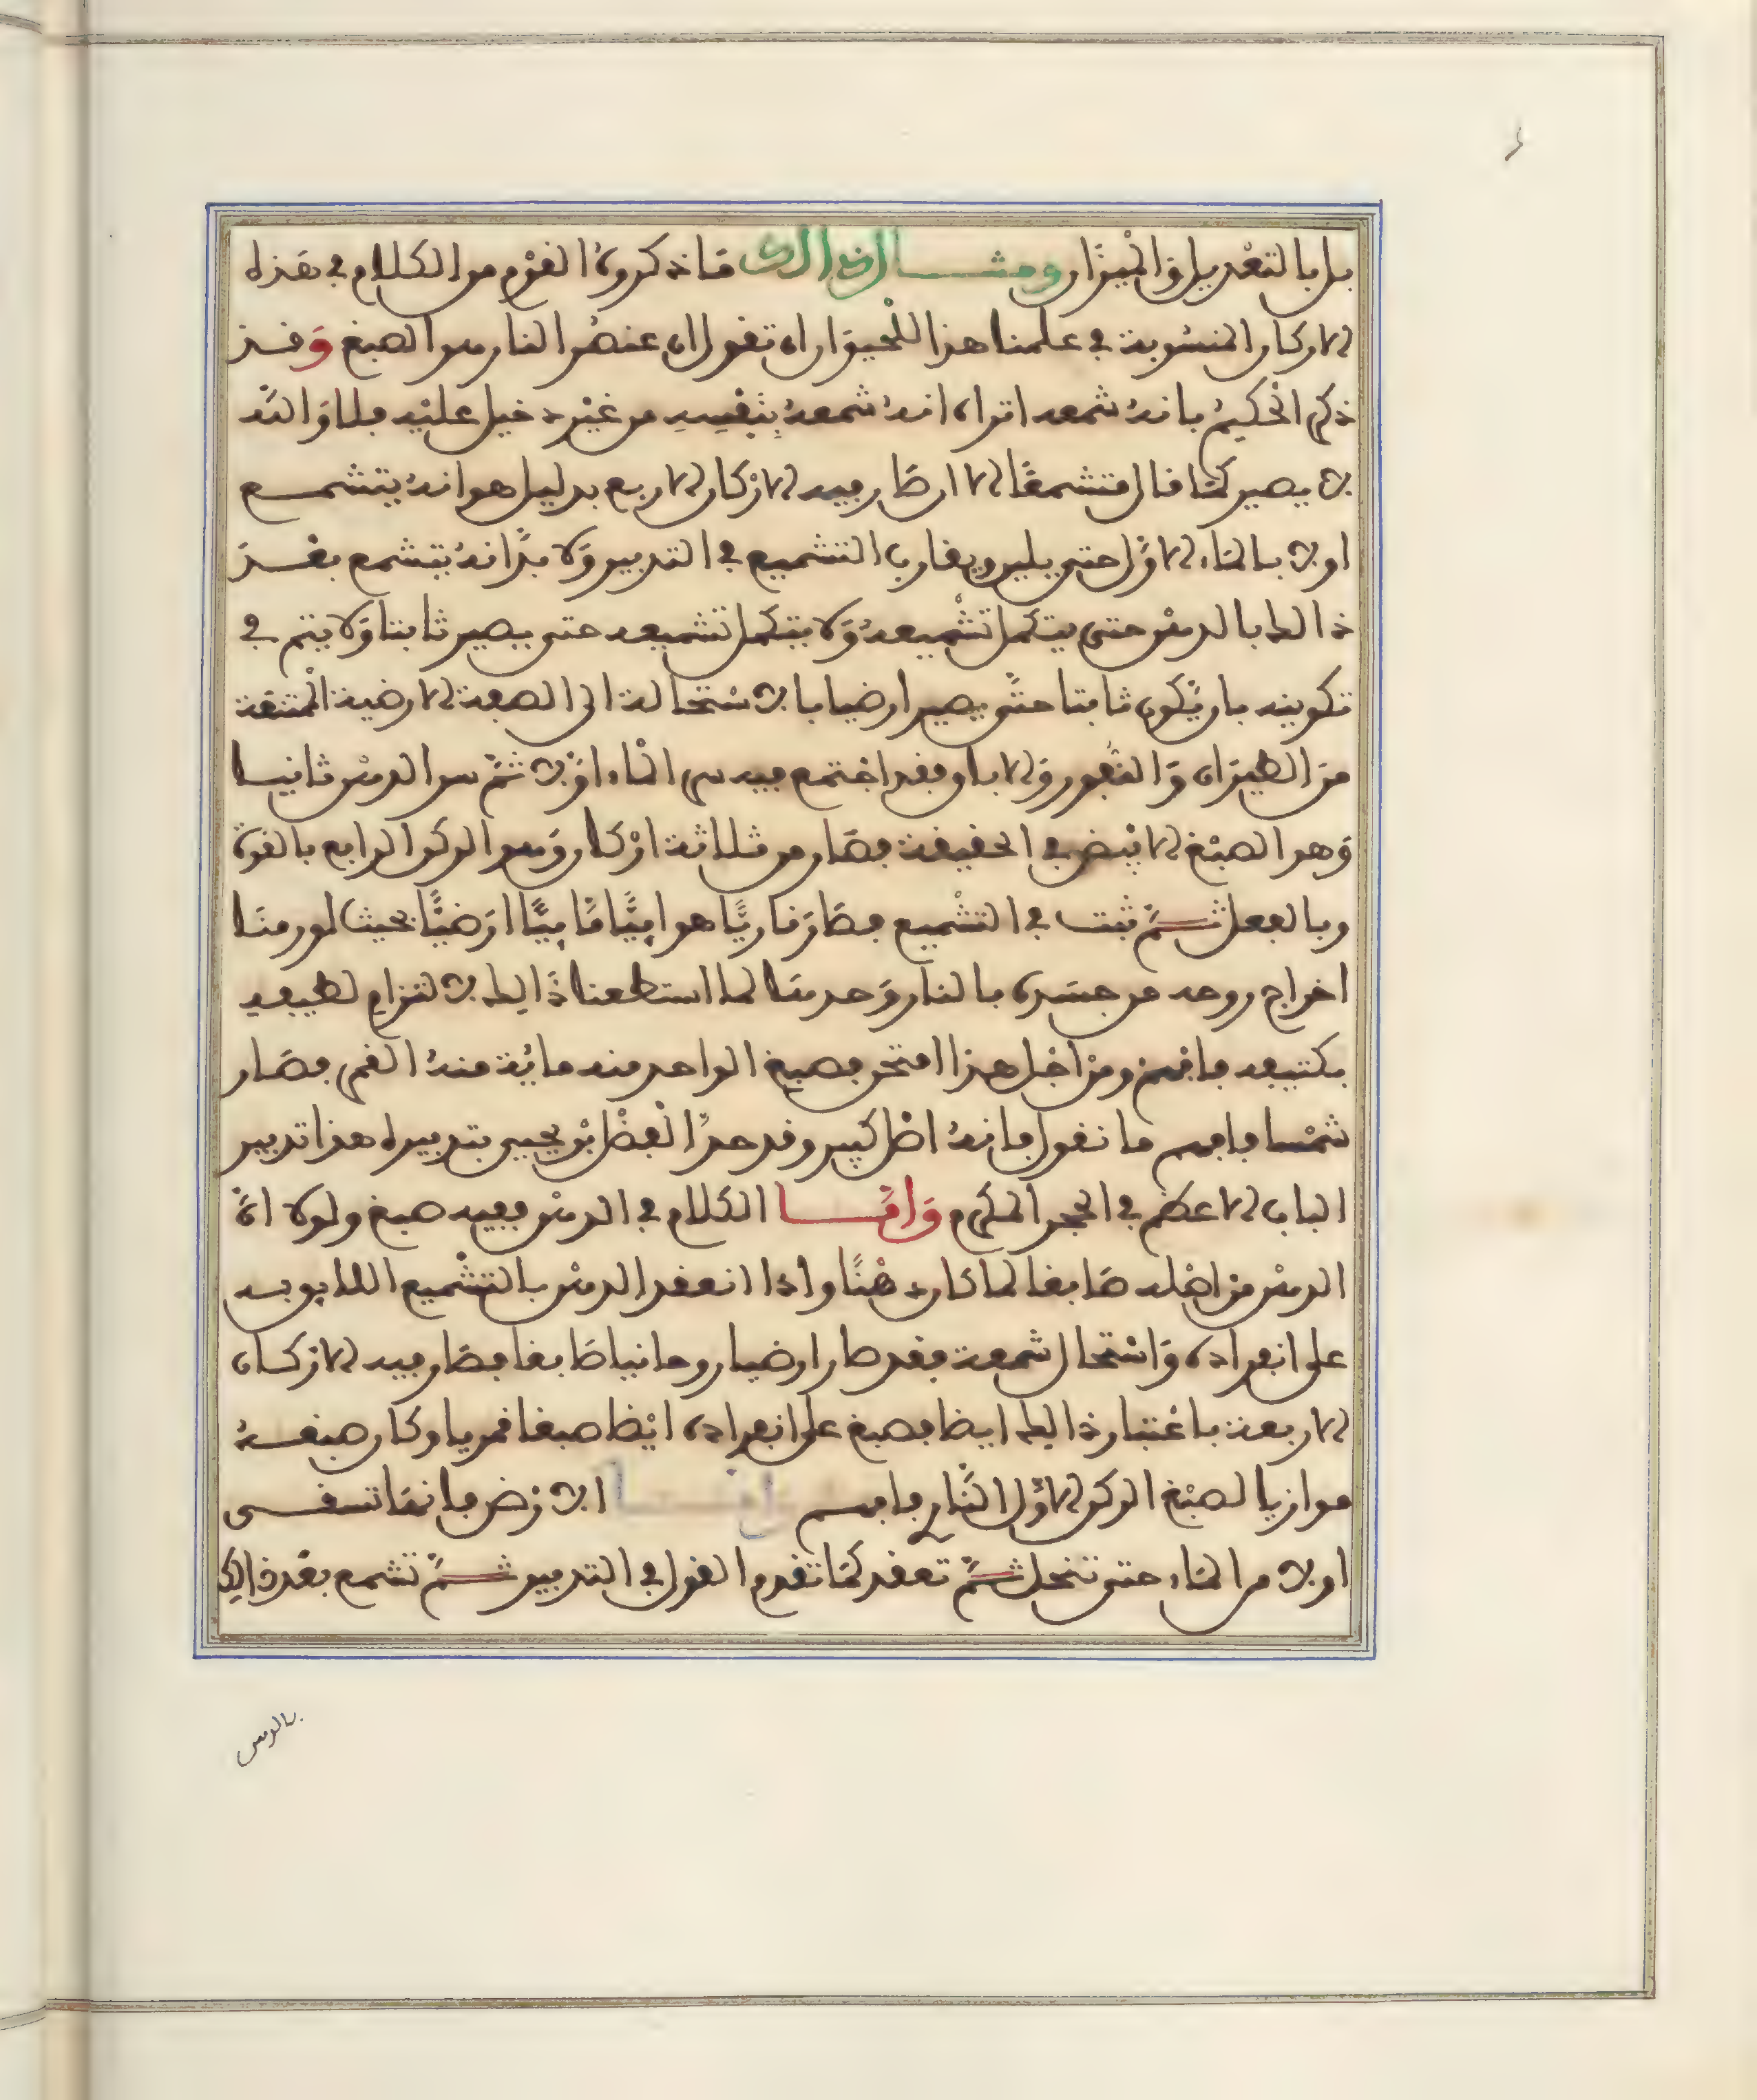 بل بالتعديل والميزان ومثال ذالك ما ذكروه القوم من الكلام في هذه
الاركان المنسوبة في علمنا هذا للحيوان ان تقول ان عنصر النار هو الصبغ وقد
ذكر الحكيم بانه شمعه اتراه انه شمعه بنفسه من غير دخيل عليه فلا والله
لا يصير كما قال متشمعا الا ان صار فيه الاركان الاربع بدليل هو انه يتشمع
اولا بالماء الاول حتى يلين ويقارب التشميع في التدبير ولا بد انه يتشمع بعد
ذالك بالدهن حتى يتكمل تشميعه ولا يتكمل تشميعه حتى يصير ثابتا ولا يتم في
تكوينه بان يكون ثابتا حتى يصير ارضيا بالاستحالة الى الصفة الارضية الممتنعة
من الطيران والنفور والاباق فقد اجتمع فيه سر الماء اولا ثم سر الدهن ثانيا
وهو الصبغ الابيض في الحقيقة فصار من ثلاثة اركان وهو الركن الرابع بالقوة
وبالفعل ثم ثبت في التشميع فصار ناريا هوائيا مائيا ارضيا بحيث لو رمنا
اخراج روحه من جسده بالنار وحدها لما استطعنا ذالك لالتزام لطيفه
بكثيفه فافهم ومن اجل هذا امتحن فصبغ الواحد منه مائة منه القمر فصار
شمسا فافهم ما نقول فانه اصل كبير وقد حد الفضل بن يحيى بتدبيره هذا تدبير
الباب الاعظم في الحجر المكرم واما الكلام في الدهن ففيه صبغ ولولا ان
الدهن من اصله صابغا لما كان دهنا واذا انعقد الدهن بالتشميع اللايق به
على انفراده واستحال شمعة فقد صار ارضيا روحانيا صابغا فصار فيه الاركان
الاربعة باعتبار ذالك ايضا فصبغ على انفراده ايضا صبغا قمريا وكان صبغه
موازيا لصبغ الركن الاول النار فافهم واما الارض فانها تسقى
اولا من الماء حتى تنحل ثم تعقد كما تقدم القول في التدبير ثم تشمع بعد ذالك
بالدهن